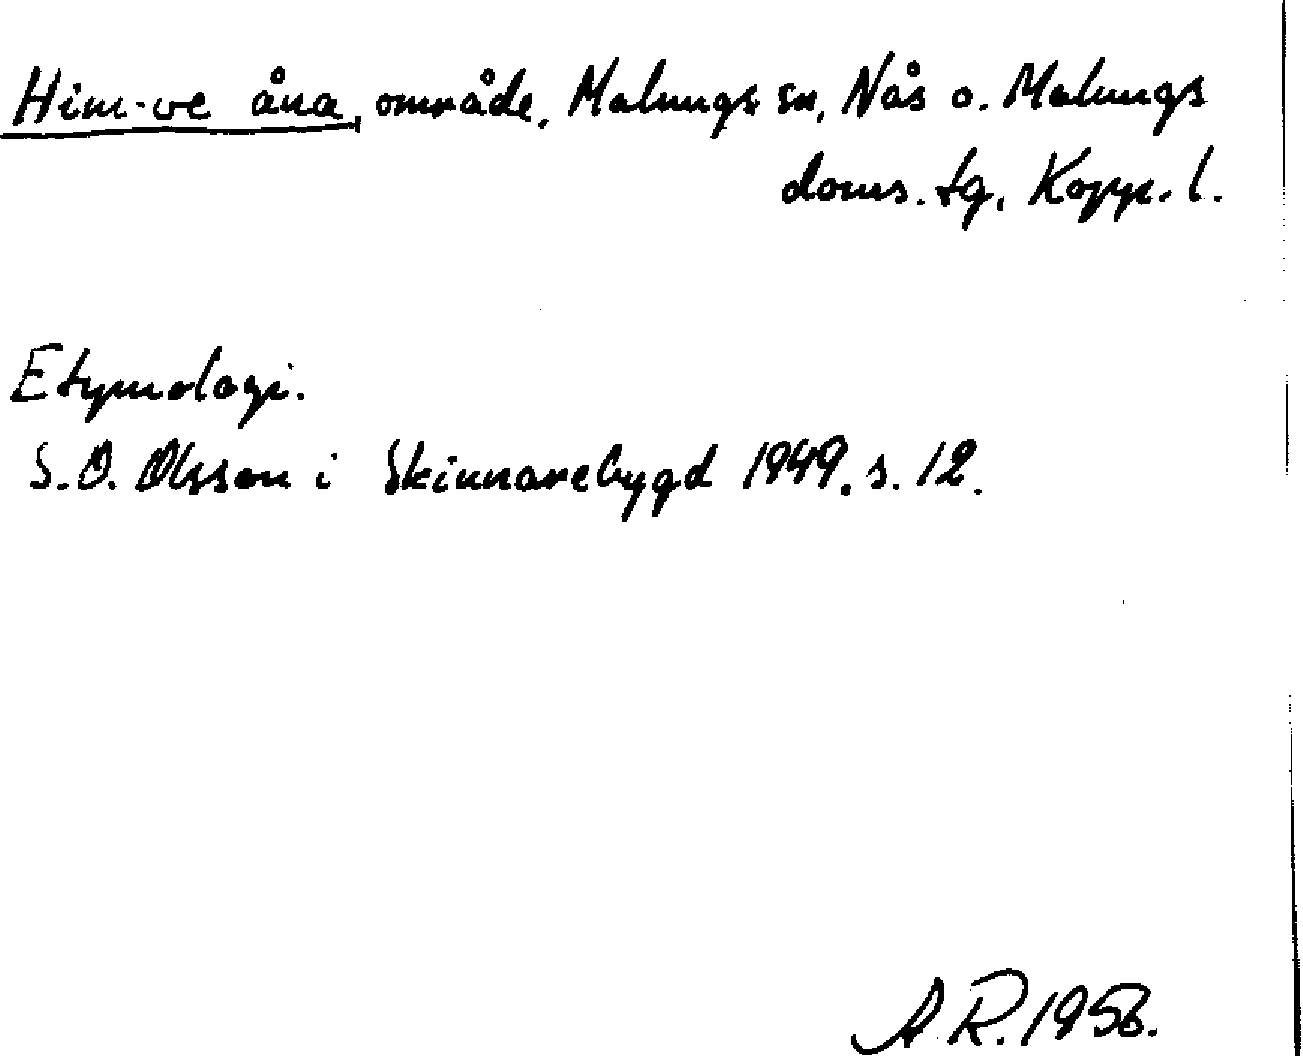 Him-ve åna, område, Malungs sn, Nås o. Malungs
doms. tg, Kopp. l.
Etymologi.
S. O. Olsson i Skinnarebygd 1949. s. 12.
A. R. 1956.